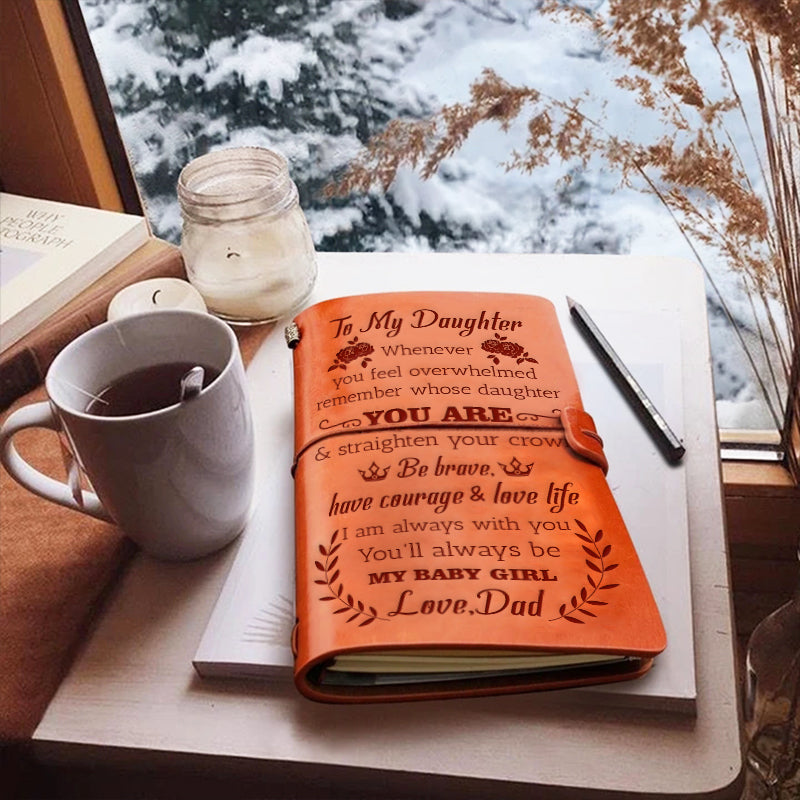 WHY
PEOPLE
PHOTOGRAPH
To My Daughter
Whenever
you feel overwhelmed
remember whose daughter
YOU ARE
& straighten your crown
Be brave,
have courage & love life
I am always with you
You'll always be
MY BABY GIRL
Love, Dad